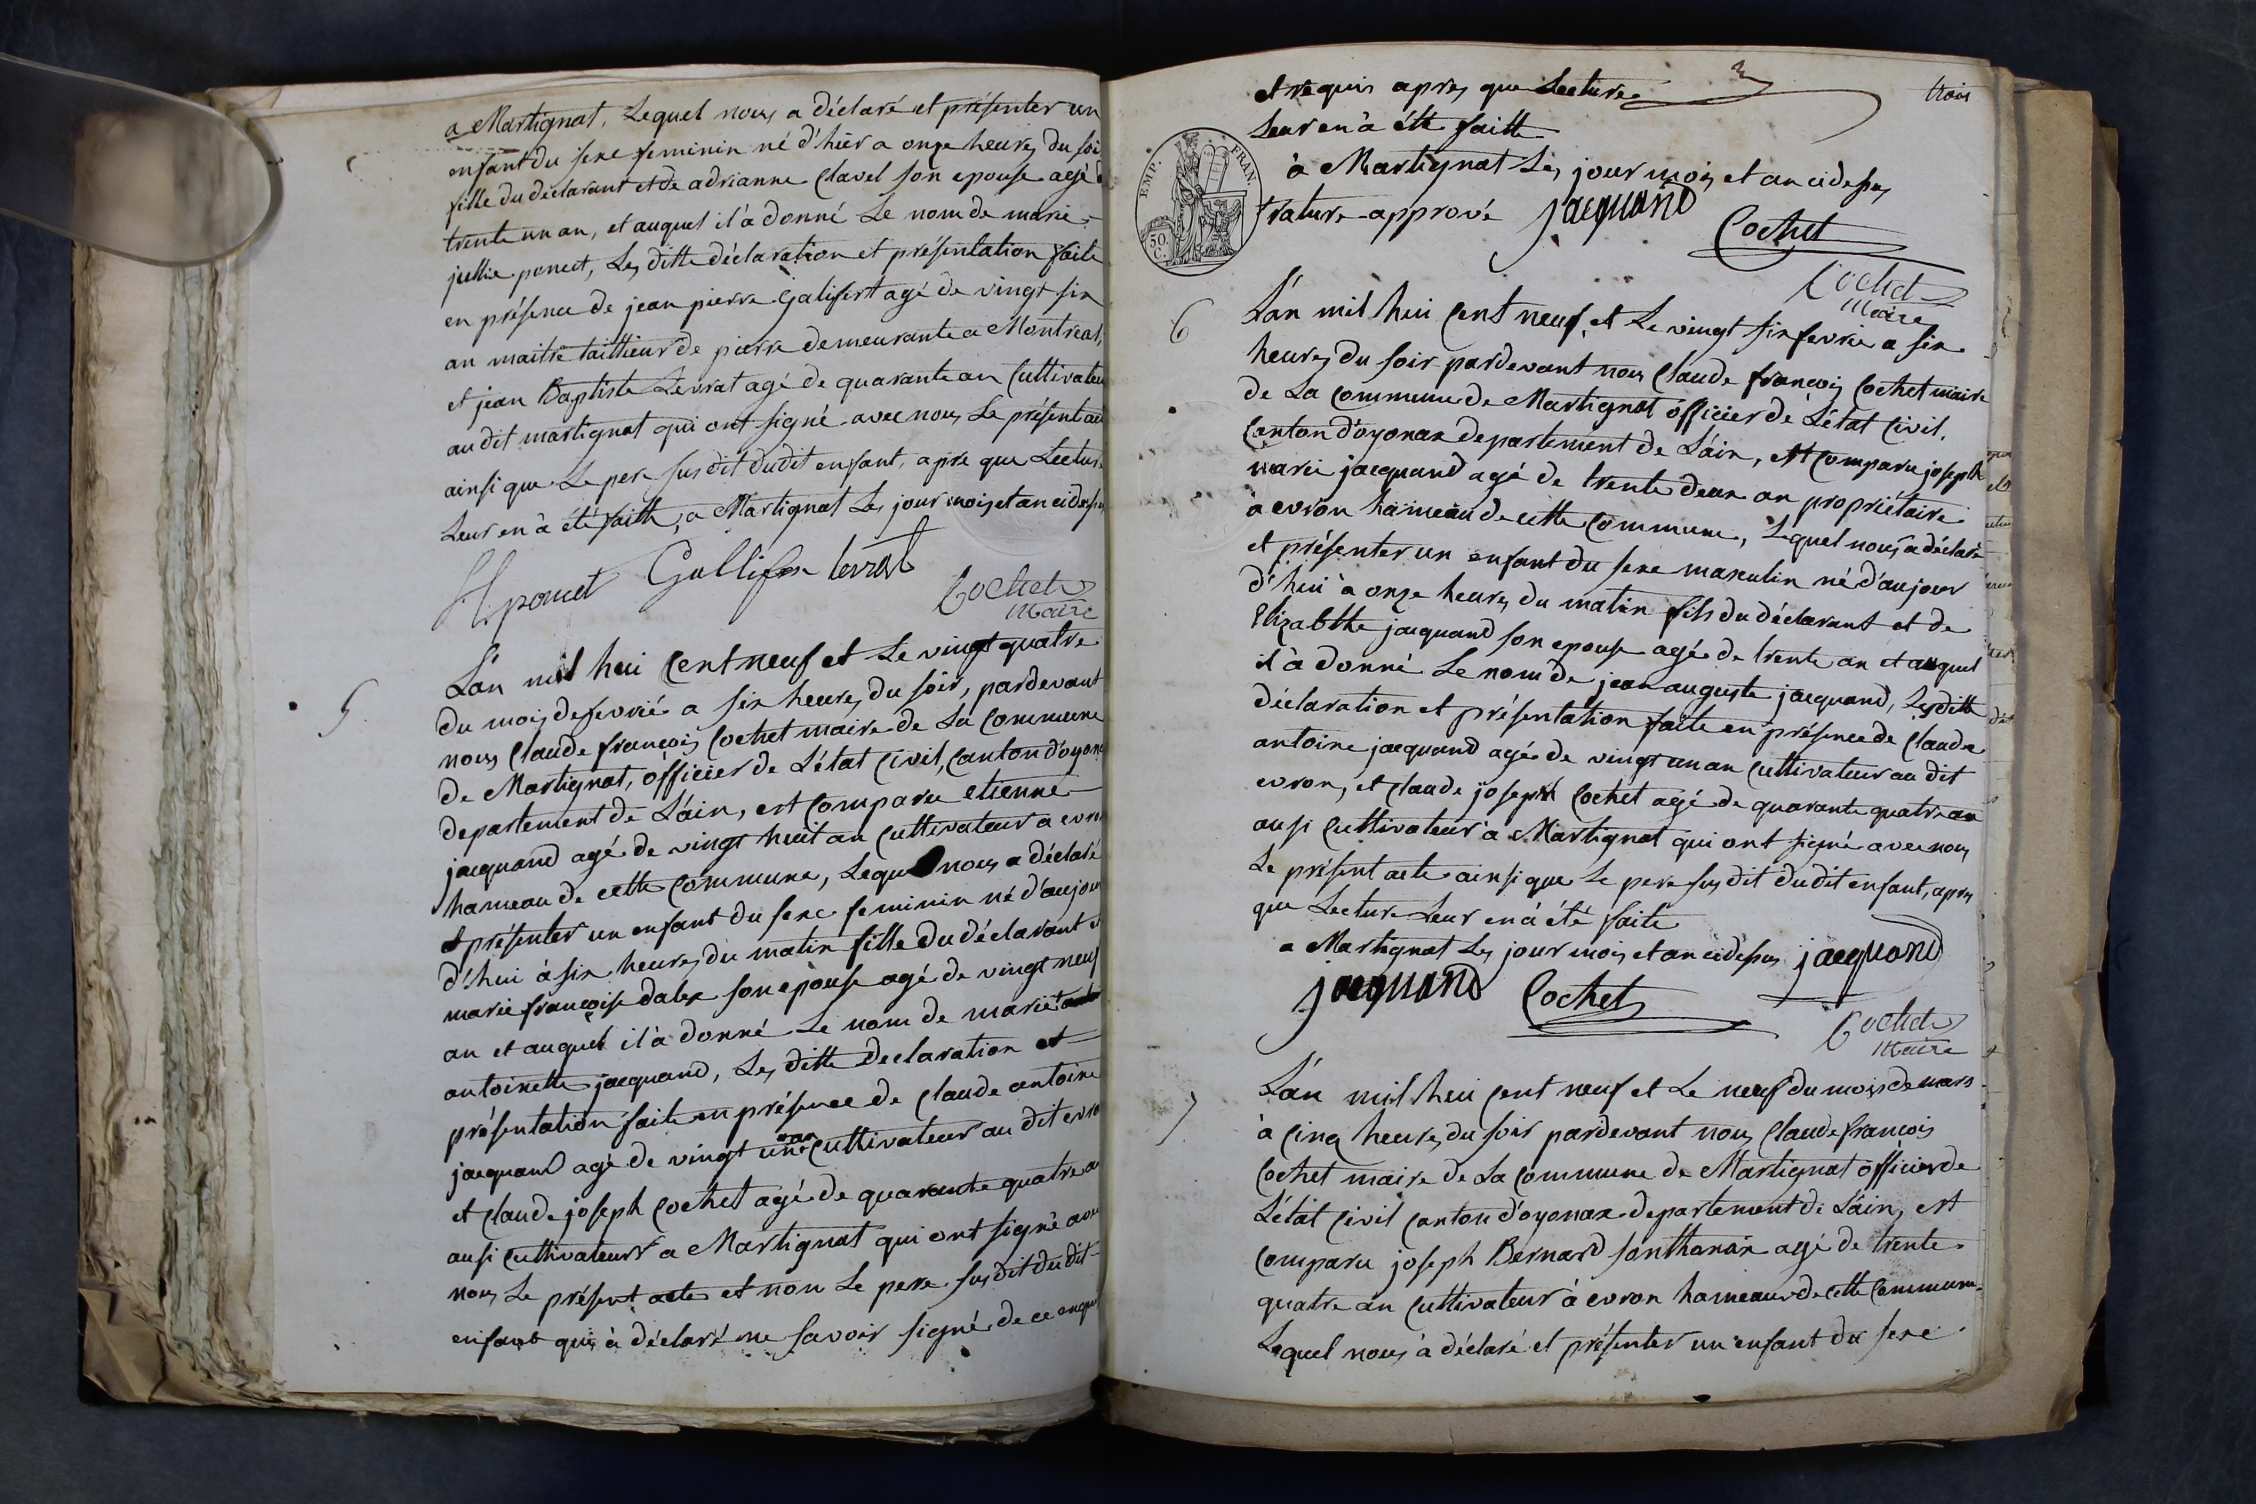 a Martignat, Lequel nous a déclaré et présenter un
enfant du sexe feminin né d'hier a onze heures du soir
fille du déclarant et de adrianne Clavel son epouse agé de
trente un an, et auquel il à donné Le nom de marie
jullie poncet, Les ditte déclaration et présentation faite
en présence de jean pierre Galifert agé de vingt six
an maitre taillieur de pierre demeurante a Montreal,
et jean Baptiste Levrat agé de quarante an Cultivateur
au dit martignat qui ont signé avec nous Le présent acte
ainsi que Le pere sus dit du dit enfant, apre que Lecture
Leur en à été faitte, a Martignat Les jour mois et an cidessus
poncet Galliffer levrat
Cochet
Maire
5 L'an mil hui Cent neuf et Le vingt quatre
du mois de fevrié a six heures du soir, pardevant
nous Claude françois Cochet maire de La Commune
de Martignat, officier de L'état Civil, Canton d'oyonax
departement de L'ain, est Comparu etienne
jacquand agé de vingt huit an Cultivateur a evron
hameau de cette Commune, Lequel nous a déclaré
et présenter un enfant du sexe feminin né d'aujour
d'hui à six heures du matin fille du déclarant et
marie françoise dalex son epouse agé de vingt neuf
an et auquel il à donné Le nom de marie
antoinette jacquand, Les ditte declaration et
présentation faite en présence de Claude antoine
jacquand agé de vingt un an Cultivateur au dit evron
et Claude joseph Cochet agé de quarante quatre an
ausi Cultivateur a Martignat qui ont signé avec
nous Le présent acte et non Le pere sus dit du dit
enfant qui à déclaré ne savoir signé de ce enquis
trois
et requis apres que Lecture
Leur en à été faitte
à Martignat Les jour mois et an cidessus
rature apprové jacquand
Cochet
Cochet
Maire
EMP. FRAN.
50 C.
6 L'an mil hui Cent neuf, et Le vingt six fevrié a six
heures du soir pardevant nous Claude françois Cochet maire
de La Commune de Martignat officier de L'état Civil,
Canton d'oyonax departement de L'ain, est Comparu joseph
marie jacquand agé de trente deux an propriétaire
à evron hameau de cette Commune, Lequel nous a déclaré
et présenter un enfant du sexe masculin né d'aujour
d'hui à onze heures du matin fils du déclarant et de
Elizabthe jacquand son epouse agé de trente an et auquel
il à donné Le nom de jean auguste jacquand, Les ditte
déclaration et présentation faite en présence de Claude
antoine jacquand agé de vingt un an Cultivateur au dit
evron, et Claude joseph Cochet agé de quarante quatre an
ausi Cultivateur a Martignat qui ont signé avec nous
Le présent acte ainsi que Le pere sus dit du dit enfant, apres
que Lecture Leur en à été faite
a Martignat Les jour mois et an cidessus jacquand
jacquand Cochet
Cochet
Maire
7 L'an mil hui Cent neuf et Le neuf du mois de mars
à Cinq heures du soir pardevant nous Claude françois
Cochet maire de La Commune de Martignat officier de
L'état Civil Canton d'oyonax departement de L'ain, est
Comparu joseph Bernard sonthonax agé de trente
quatre an Cultivateur à evron hameau de cette Commune
Lequel nous à déclaré et présenter un enfant du sexe